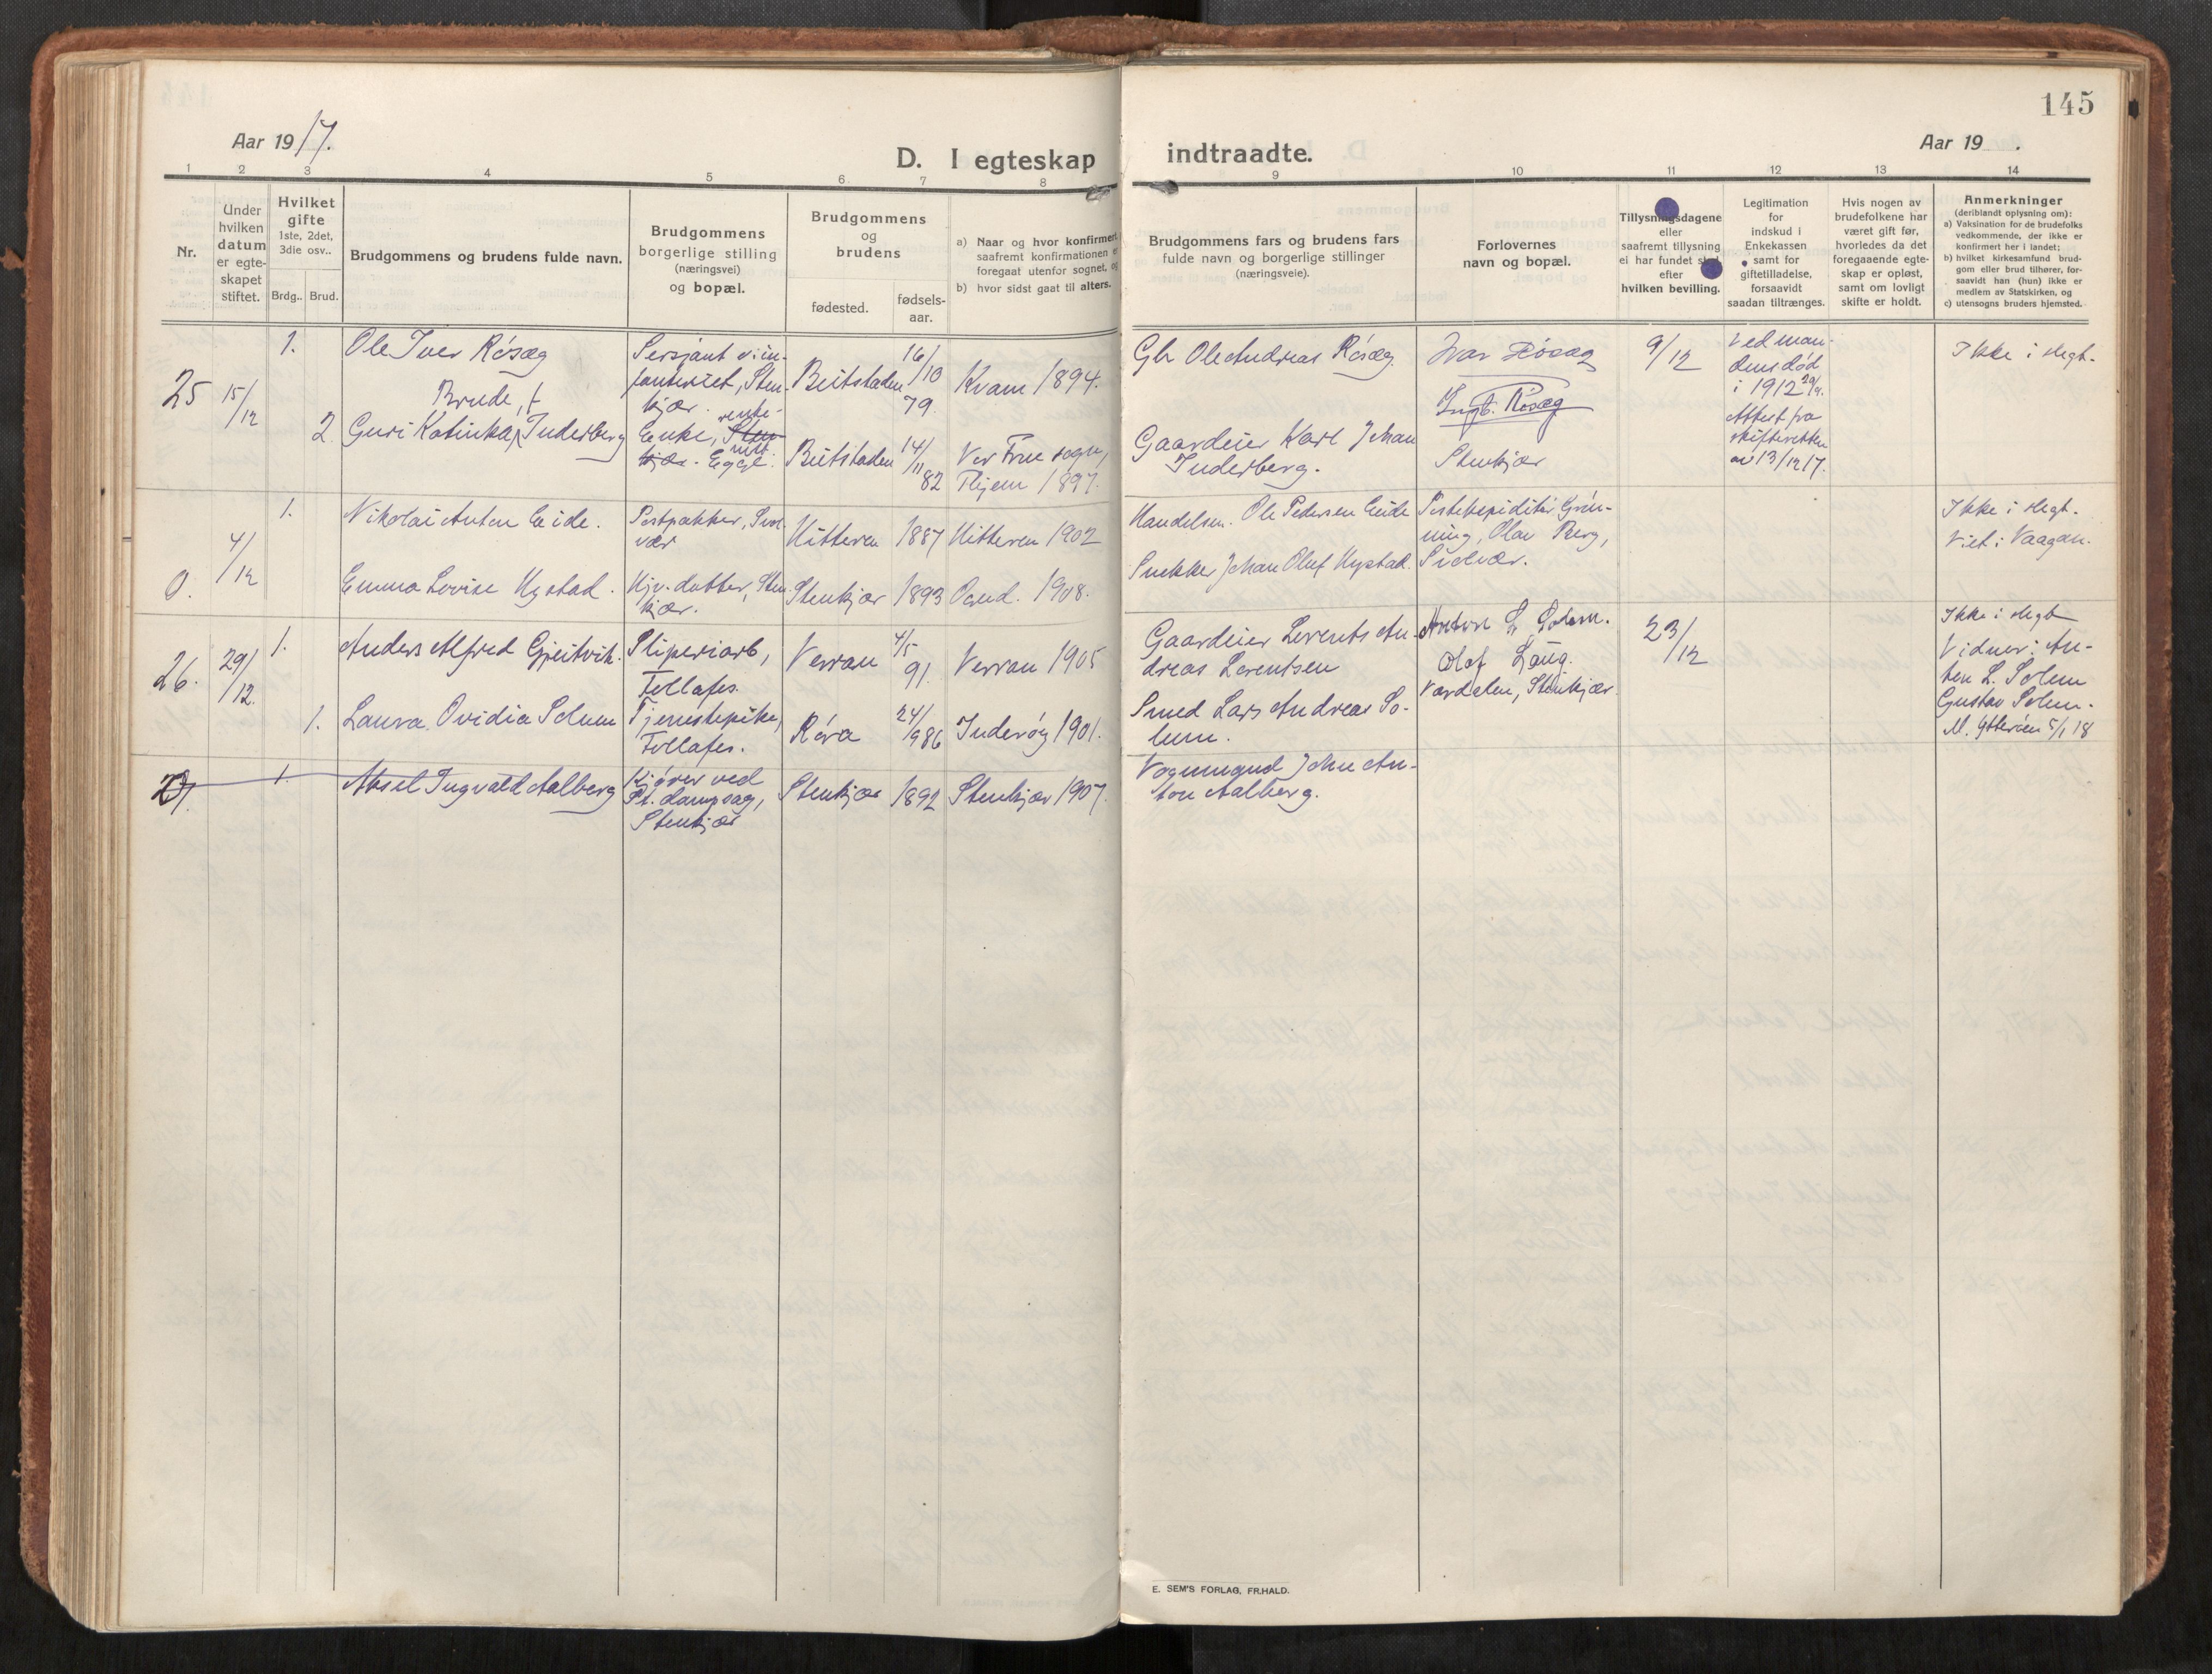 145
Aar 1917.
D. I egteskap indtraadte.
Aar 19 .
1 2 3 4 5 6 7 8 9 10 11 12 13 14
Nr.
Under hvilken datum er egte-skapet stiftet.
Hvilket gifte
1ste, 2det, 3die osv..
Brdg.. Brud.
Brudgommens og brudens fulde navn.
Brudgommens
borgerlige stilling
(næringsvei)
og bopæl.
Brudgommens
og
brudens
fødested.
fødsels-
aar.
a) Naar og hvor konfirmert
saafremt konfirmationen e
foregaat utenfor sognet, og
b) hvor sidst gaat til alters.
Brudgommens fars og brudens fars
fulde navn og borgerlige stillinger
(næringsveie).
Forlovernes
navn og bopæl.
Tillysningsdagene
eller
saafremt tillysning
ei har fundet sted
efter
hvilken bevilling.
Legitimation
for
indskud i
Enkekassen
samt for
giftetilladelse,
forsaavidt
saadan tiltrænges.
Hvis nogen av
brudefolkene har
været gift før,
hvorledes da det
foregaaende egte-
skap er opløst,
samt om lovligt
skifte er holdt.
Anmerkninger
(deriblandt oplysning om):
a) Vaksination for de brudefolks
vedkommende, der ikke er
konfirmert her i landet;
b) hvilket kirkesamfund brud-
gom eller brud tilhører, for-
saavidt han (hun) ikke er
medlem av Statskirken, og
c) utensogns bruders hjemsted.
25 15/12 1. Ole Iver Røsæg
Sersjant v. in-
fanteriet, Sten-
kjær.
Beitstaden 16/10 79. Kvam 1894.
Gbr Ole Andreas Røsæg.
Ivar Røsæg
Ingb. Røsæg
Stenkjær
9/12
Ved man-
dens død
i 1912 29/4.
Attest fra
skifteretten
av 13/12 17.
Ikke i slegt.
Brude, f.
2. Guri Katinka Inderberg
Enke, Sten-
kjær. Egge.
Beitstaden 14/11 82 Vor Frue sogn,
Thjem 1897.
Gaardeier Karl Johan
Inderberg.
0. 4/12 1. Nikolai Anton Eide.
Postpakker, Svol-
vær
Hitteren 1887 Hitteren 1902
Handelsm. Ole Pedersen Eide
Postekspeditør Grøn-
ning, Olav Berg,
Svolvær.
Ikke i slegt.
Viet i Vaagan.
Emma Lovise Hystad.
Hjv. datter, Sten
kjær.
Stenkjær 1893 Ognd. 1908.
Snekker Johan Oluf Hystad.
26. 29/12. 1. Anders Alfred Gjeitvik.
Sliperiarb,
Follafos.
Verran 4/5 91. Verran 1905
Gaardeier Lorents An-
dreas Lorentsen
Anton L Solem.
Olaf Laug.
Værdalen, Stenkjær.
23/12
Ikke i slegt
Vidner: An-
ton L. Solem
Gustav Solem.
M. Ytterøen 5/1 18
1. Laura Ovidia Solum
Tjenestepike,
Follafos.
Røra 24/9 86 Inderøy 1901.
Smed Lars Andreas So-
lum.
27. 1. Aksel Ingvald Aalberg
Kjører ved
St. dampsag,
Stenkjær
Stenkjær 1892 Stenkjær 1907.
Vognmand John An-
ton Aalberg.
E. SEM'S FORLAG, FR.HALD.